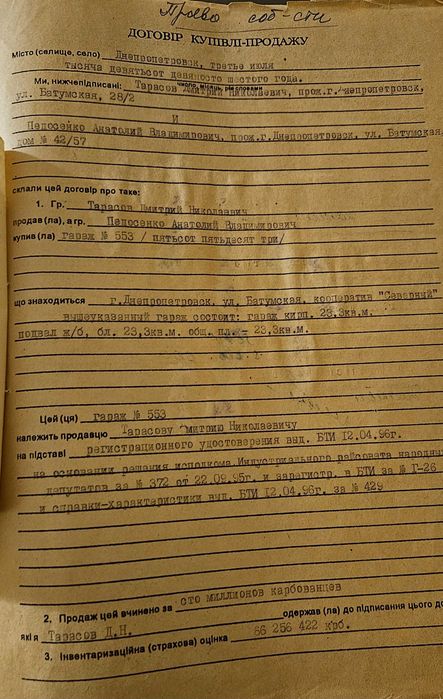 Право соб-сти
ДОГОВІР КУПІВЛІ-ПРОДАЖУ
Місто (селище, село) Днепропетровск, третье июля
тысяча девятьсот девяносто шестого года.
число, місяць, рік словами
Ми, нижчепідписані: Тарасов Дмитрий Николаевич, прож.г.Днепропетровск,
ул. Батумская, 28/2
И
Педосейко Анатолий Владимирович, прож.г.Днепропетровск, ул. Батумская
дом № 42/57
склали цей договір про таке:
1. Гр. Тарасов Дмитрий Николаевич
продав(ла), а гр. Педосенко Анатолий Владимирович
купив (ла) гараж № 553 / пятьсот пятьдесят три/
що знаходиться г.Днепропетровск, ул. Батумская, кооператив "Северный"
вышеуказанный гараж состоит: гараж кирп. 23,3кв.м.
подвал ж/б, бл. 23,3кв.м. общ. пл. - 23,3кв.м.
Цей (ця) гараж № 553
належить продавцю Тарасову Дмитрию Николаевичу
на підставі регистрационного удостоверения выд. БТИ 12.04.96г.
на основании решения исполкома Индустриального райсовета народных
депутатов за № 372 от 22.09.95г. и зарегистр. в БТИ за № Г-26
и справки-характеристики выд. БТИ 12.04.96г. за № 429
2. Продаж цей вчинено за сто миллионов карбованцев
які я Тарасов Д.Н. одержав (ла) до підписання цього до
3. Інвентаризаційна (страхова) оцінка 66 256 422 крб.